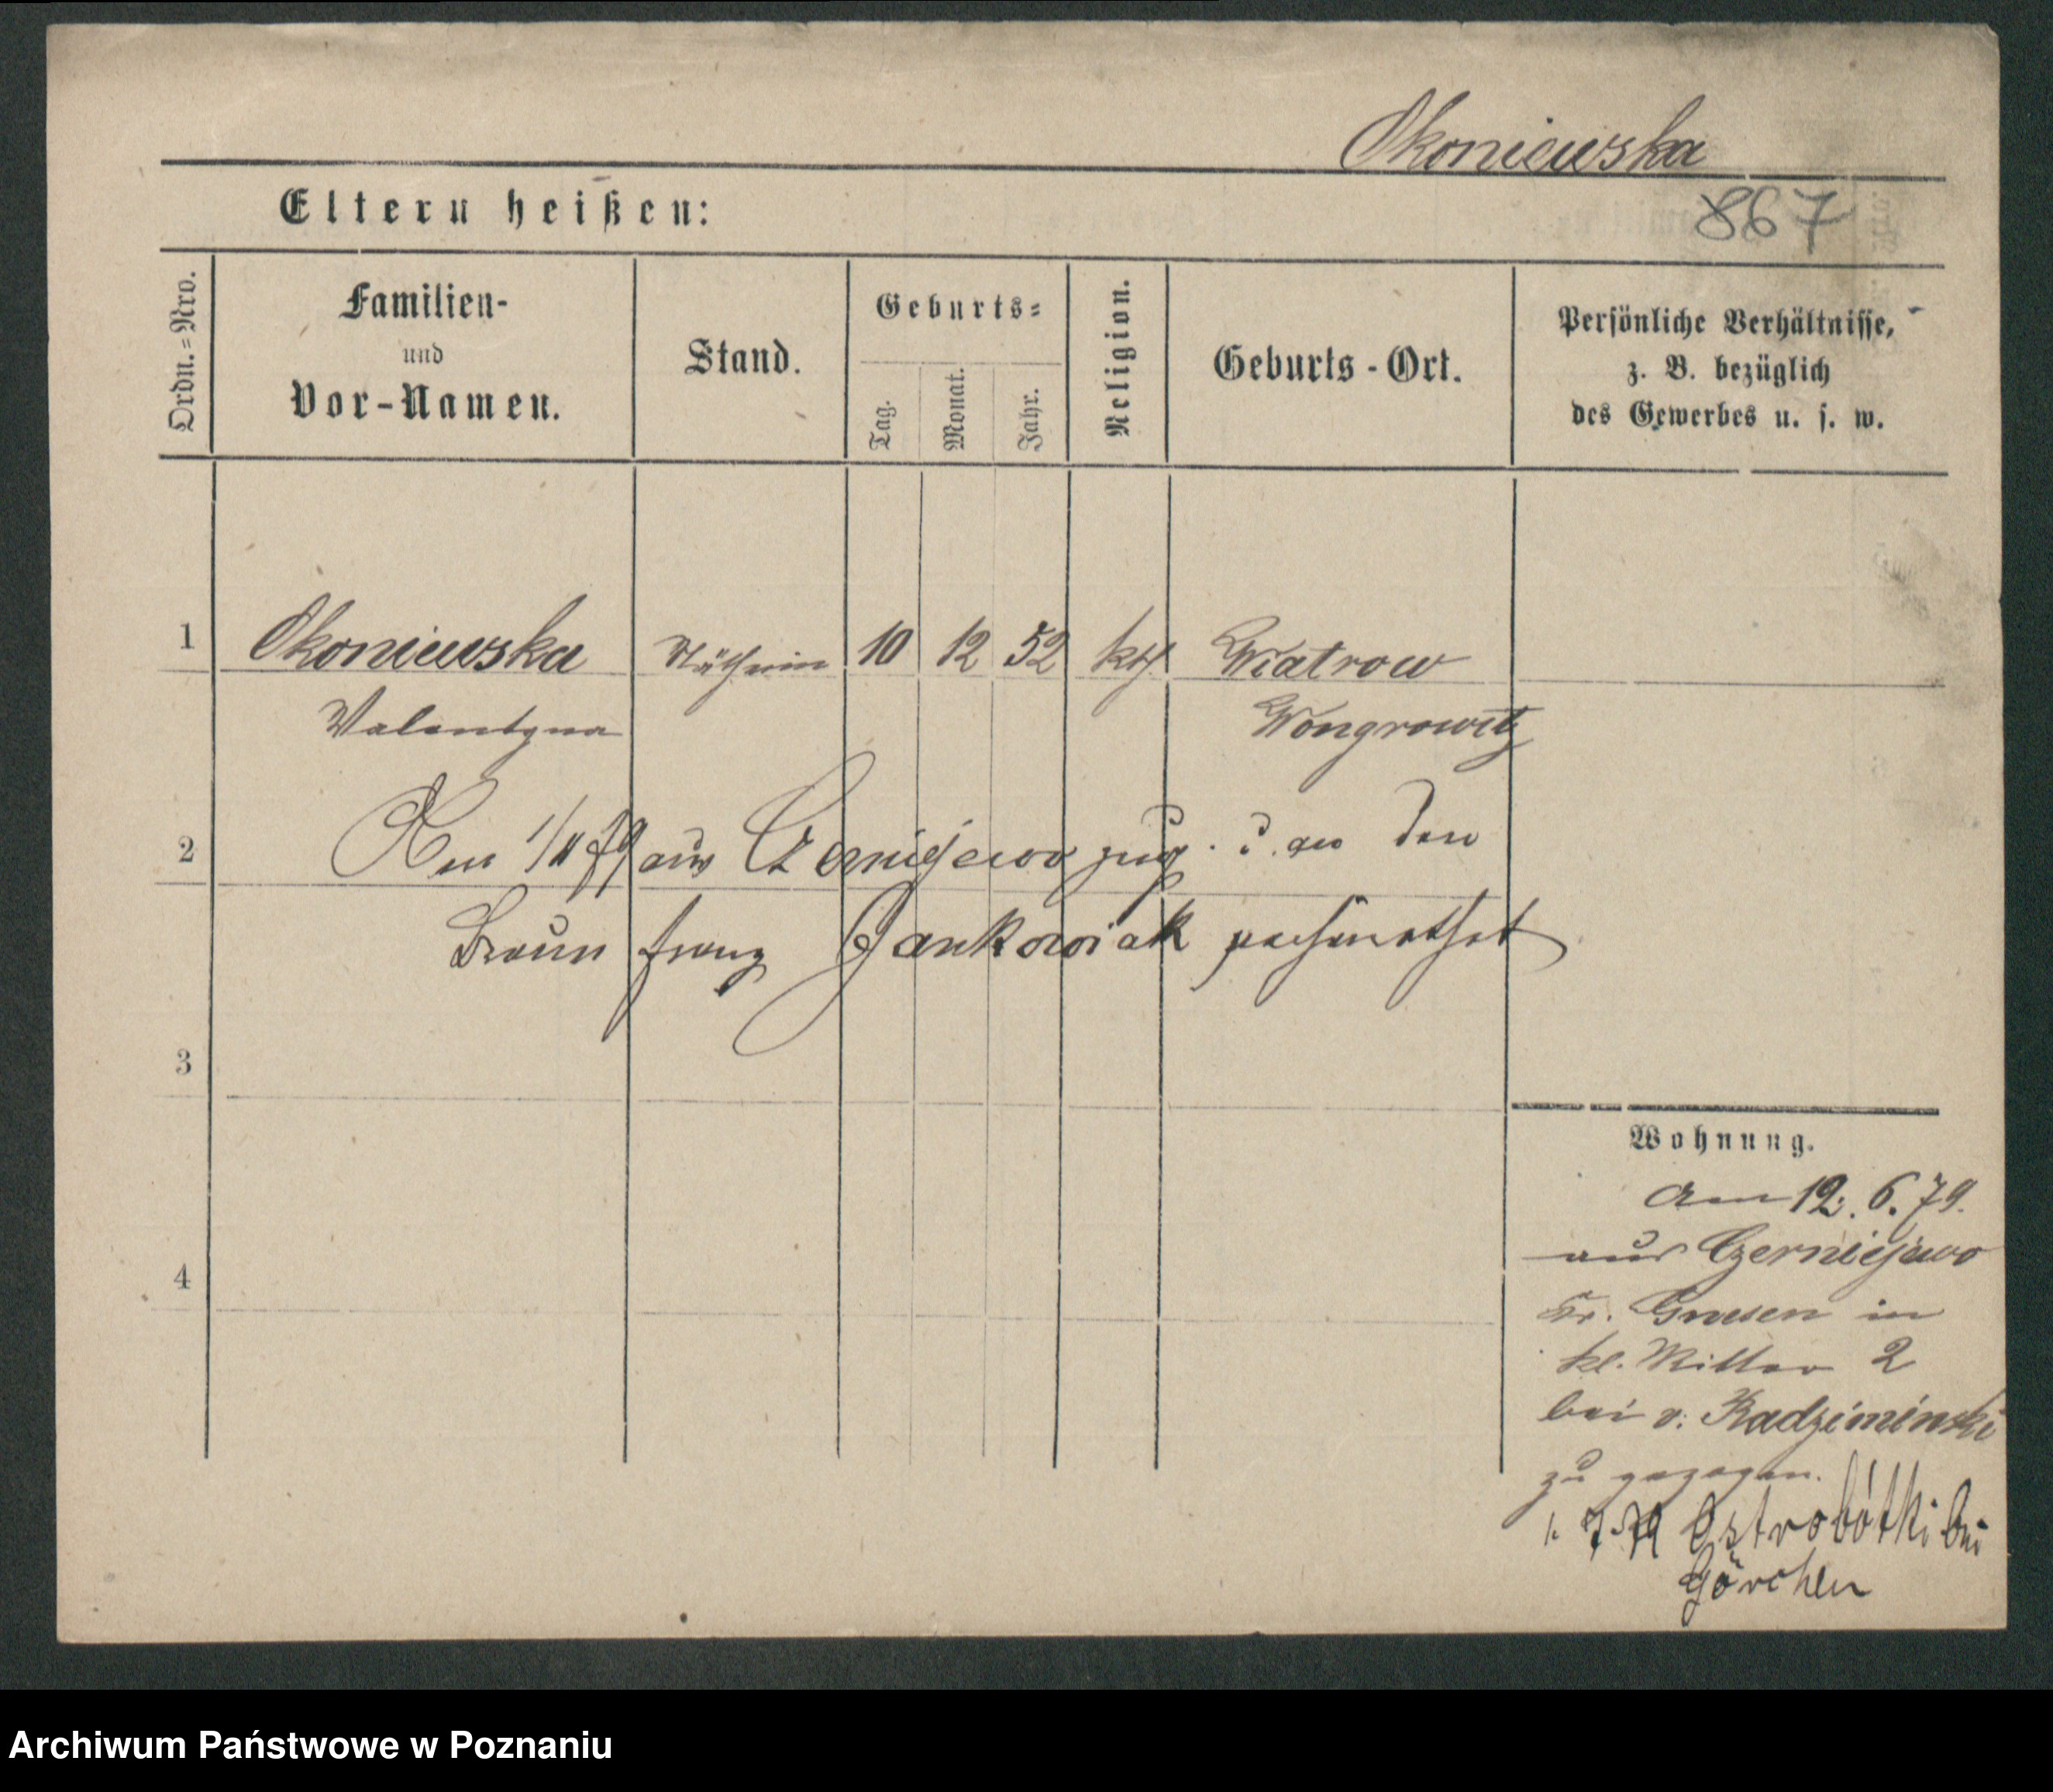 Okoniewska
867
Eltern heißen:
Ordn.=Nro.
Familien-
und
Vor-Namen.
Stand.
Geburts=
Tag.
Monat.
Jahr.
Religion.
Geburts-Ort.
Persönliche Verhältnisse,
z. B. bezüglich
des Gewerbes u. s. w.
1 Okoniewska Näherin 10 12 52 kth. Wiatrowo
Valentyna Wongrowitz
2 Am 1/11 79 aus Czerniejewo zug. u. an den
Franz Jankowiak verheirathet
3
4
Wohnung.
Am 12. 6. 79.
aus Czerniejewo
Kr. Gnesen in
kl. Ritter 2
bei v. Radziminski
zu gezogen.
1. 7. 79 Ostrobótki bei
Görchen
Archiwum Państwowe w Poznaniu